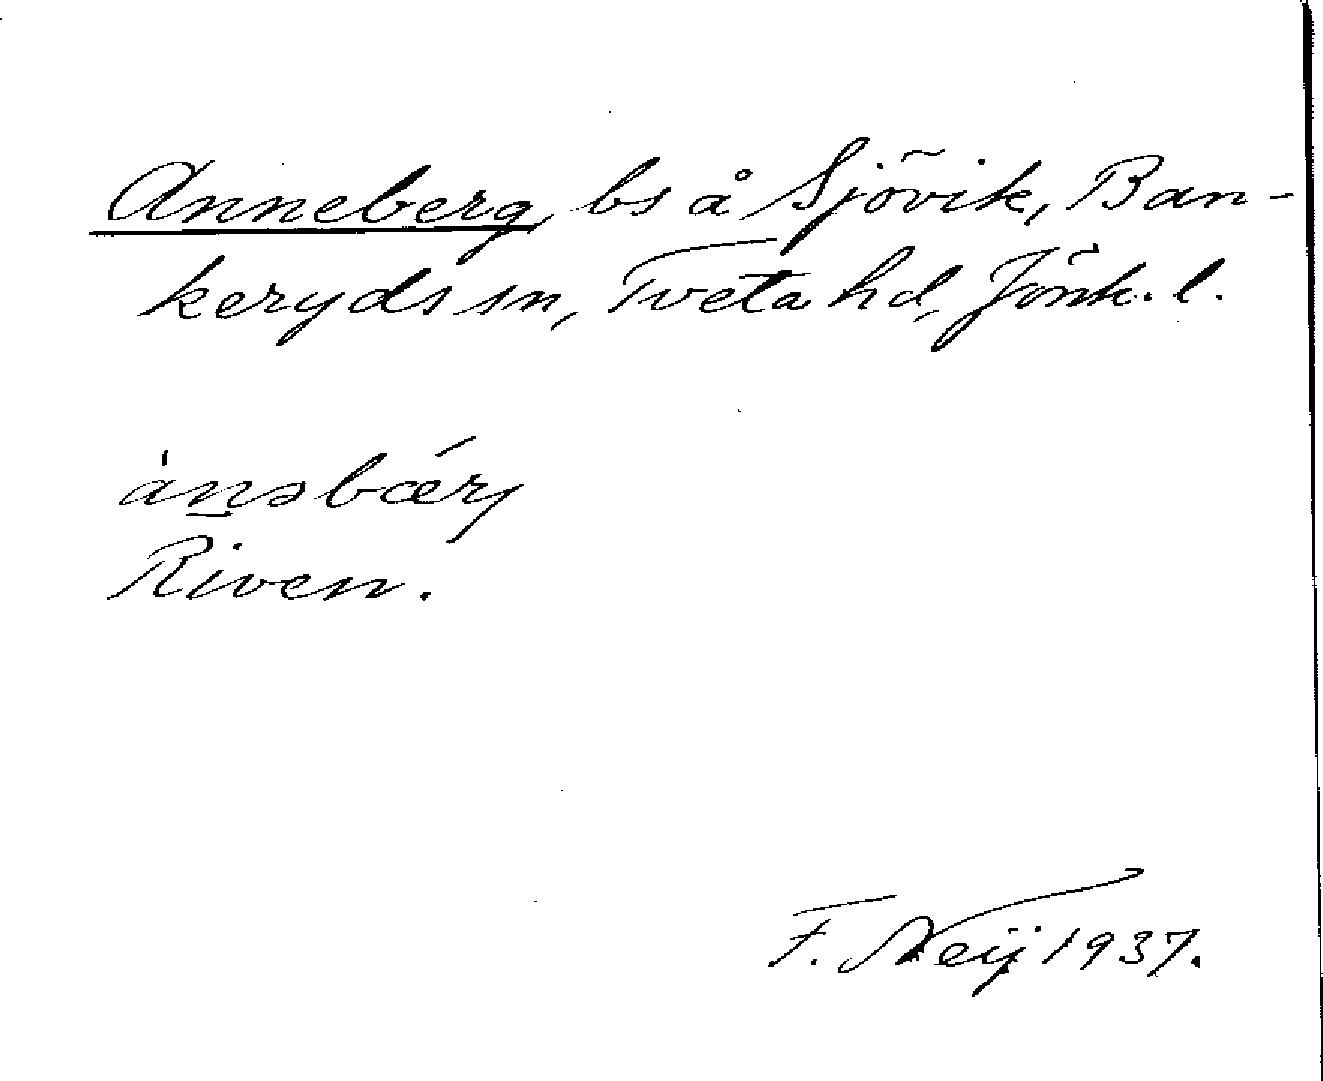 Anneberg, bs å Sjövik, Ban-
keryds sn, Tveta hd, Jönk. l.
ànəbǽrj
Riven.
F. Neij 1937.